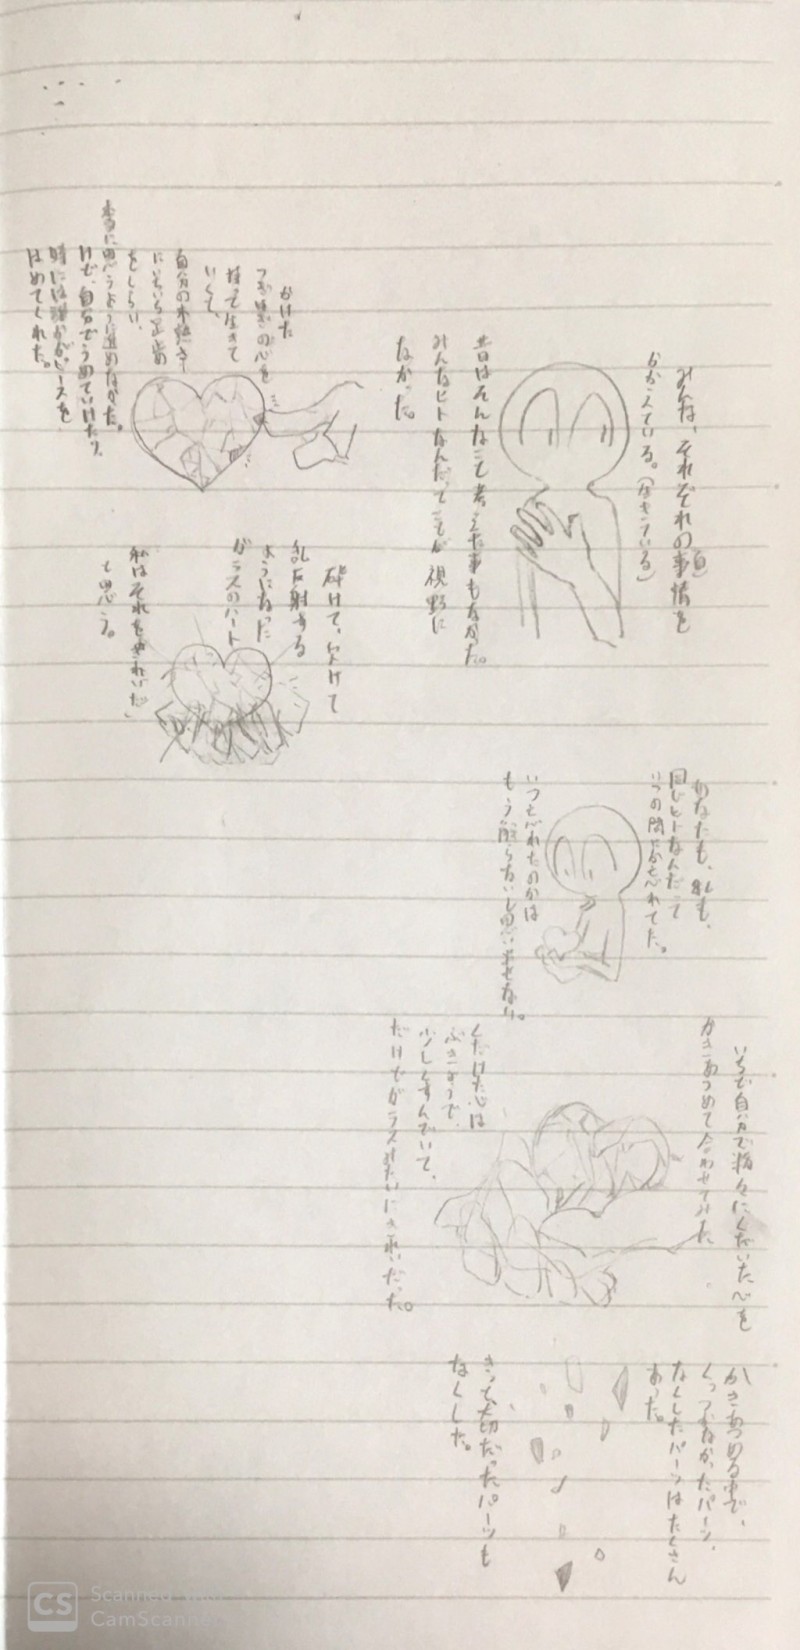 みんな、それぞれの事情を
(白)
かかえている。(生きている)
昔はそんなこと考えた事もなかった。
みんなヒトなんだってことが視野に
なかった。
かけた
つぎはぎの心を
持って生きて
いくて、
自分の未熟さ
にいちいち足止め
をくらい、
本当に思うように進めなかった。
けど、自分でうめていけたり、
時には誰かがピースを
はめてくれた。
砕けて、欠けて
乱反射する
ようになった
ガラスのハート
私はそれをきれいだ
と思う。
あなたも、私も、
同じヒトなんだって
いつの間にか忘れてた。
いつ忘れたのかは
もう解らないし思い出せない。
いちど自分で粉々にくだいた心を
かきあつめて合わせてみた
くだけた心は
ぶきようで、
少しくすんでいて、
だけどガラスみたいにきれいだった。
かきあつめる中で、
くっつかなかったパーツ、
なくしたパーツはたくさん
あった。
きっと大切だったパーツも
なくした。
CS
Scanned with
CamScanner